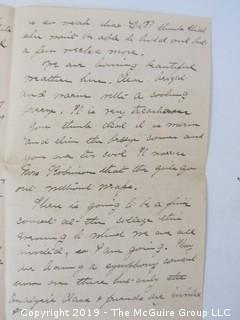 is so weak dear Dr P thinks that
she wont be able to hold out but
a few weeks more.
We are having beautiful
weather here. Clear bright
and warm with a cooling
breeze. It is very treacherous
you think that it is warm
and then the breeze comes and
you are too cool. It worries
Mrs Robinson that the girls go
out without wraps.
There is going to be a fine
concert at the college this
evening to which we are all
invited, so I am going. They
are having a symphony concert
over there but only the
Analysis Class & friends are invited
Copyright 2019 - The McGuire Group LLC